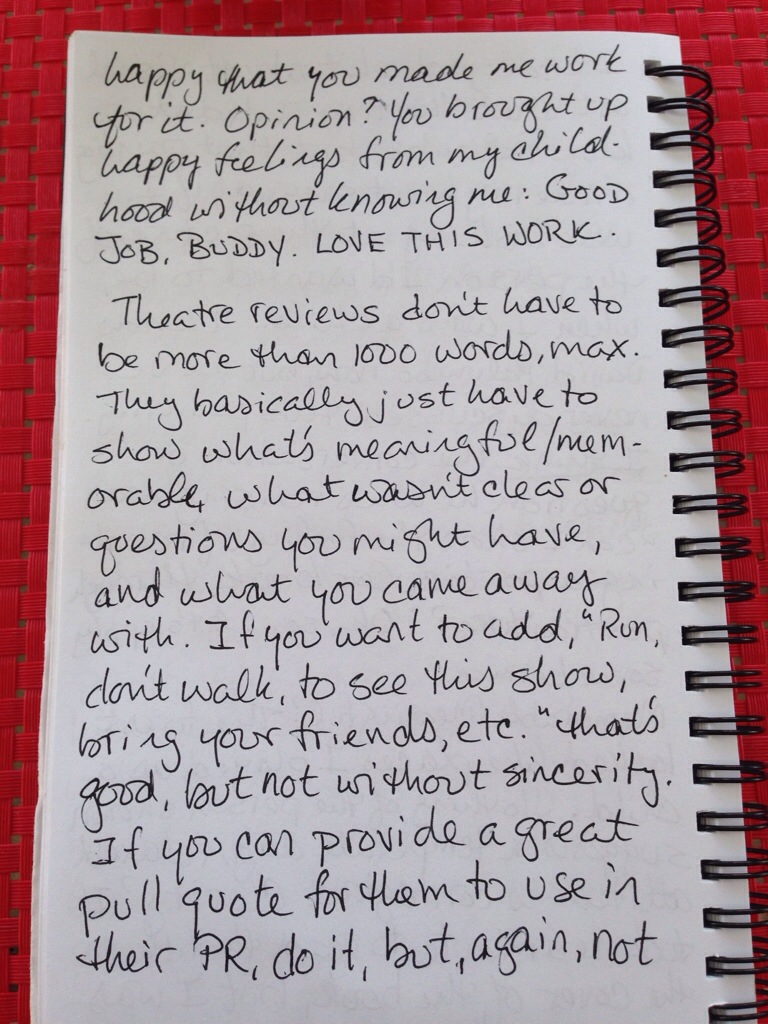 happy that you made me work
for it. Opinion? You brought up
happy feelings from my child-
hood without knowing me: GOOD
JOB, BUDDY. LOVE THIS WORK.
Theatre reviews don't have to
be more than 1000 words, max.
They basically just have to
show what's meaningful/mem-
orable, what wasn't clear or
questions you might have,
and what you came away
with. If you want to add, "Run,
don't walk, to see this show,
bring your friends, etc." that's
good, but not without sincerity.
If you can provide a great
pull quote for them to use in
their PR, do it, but, again, not